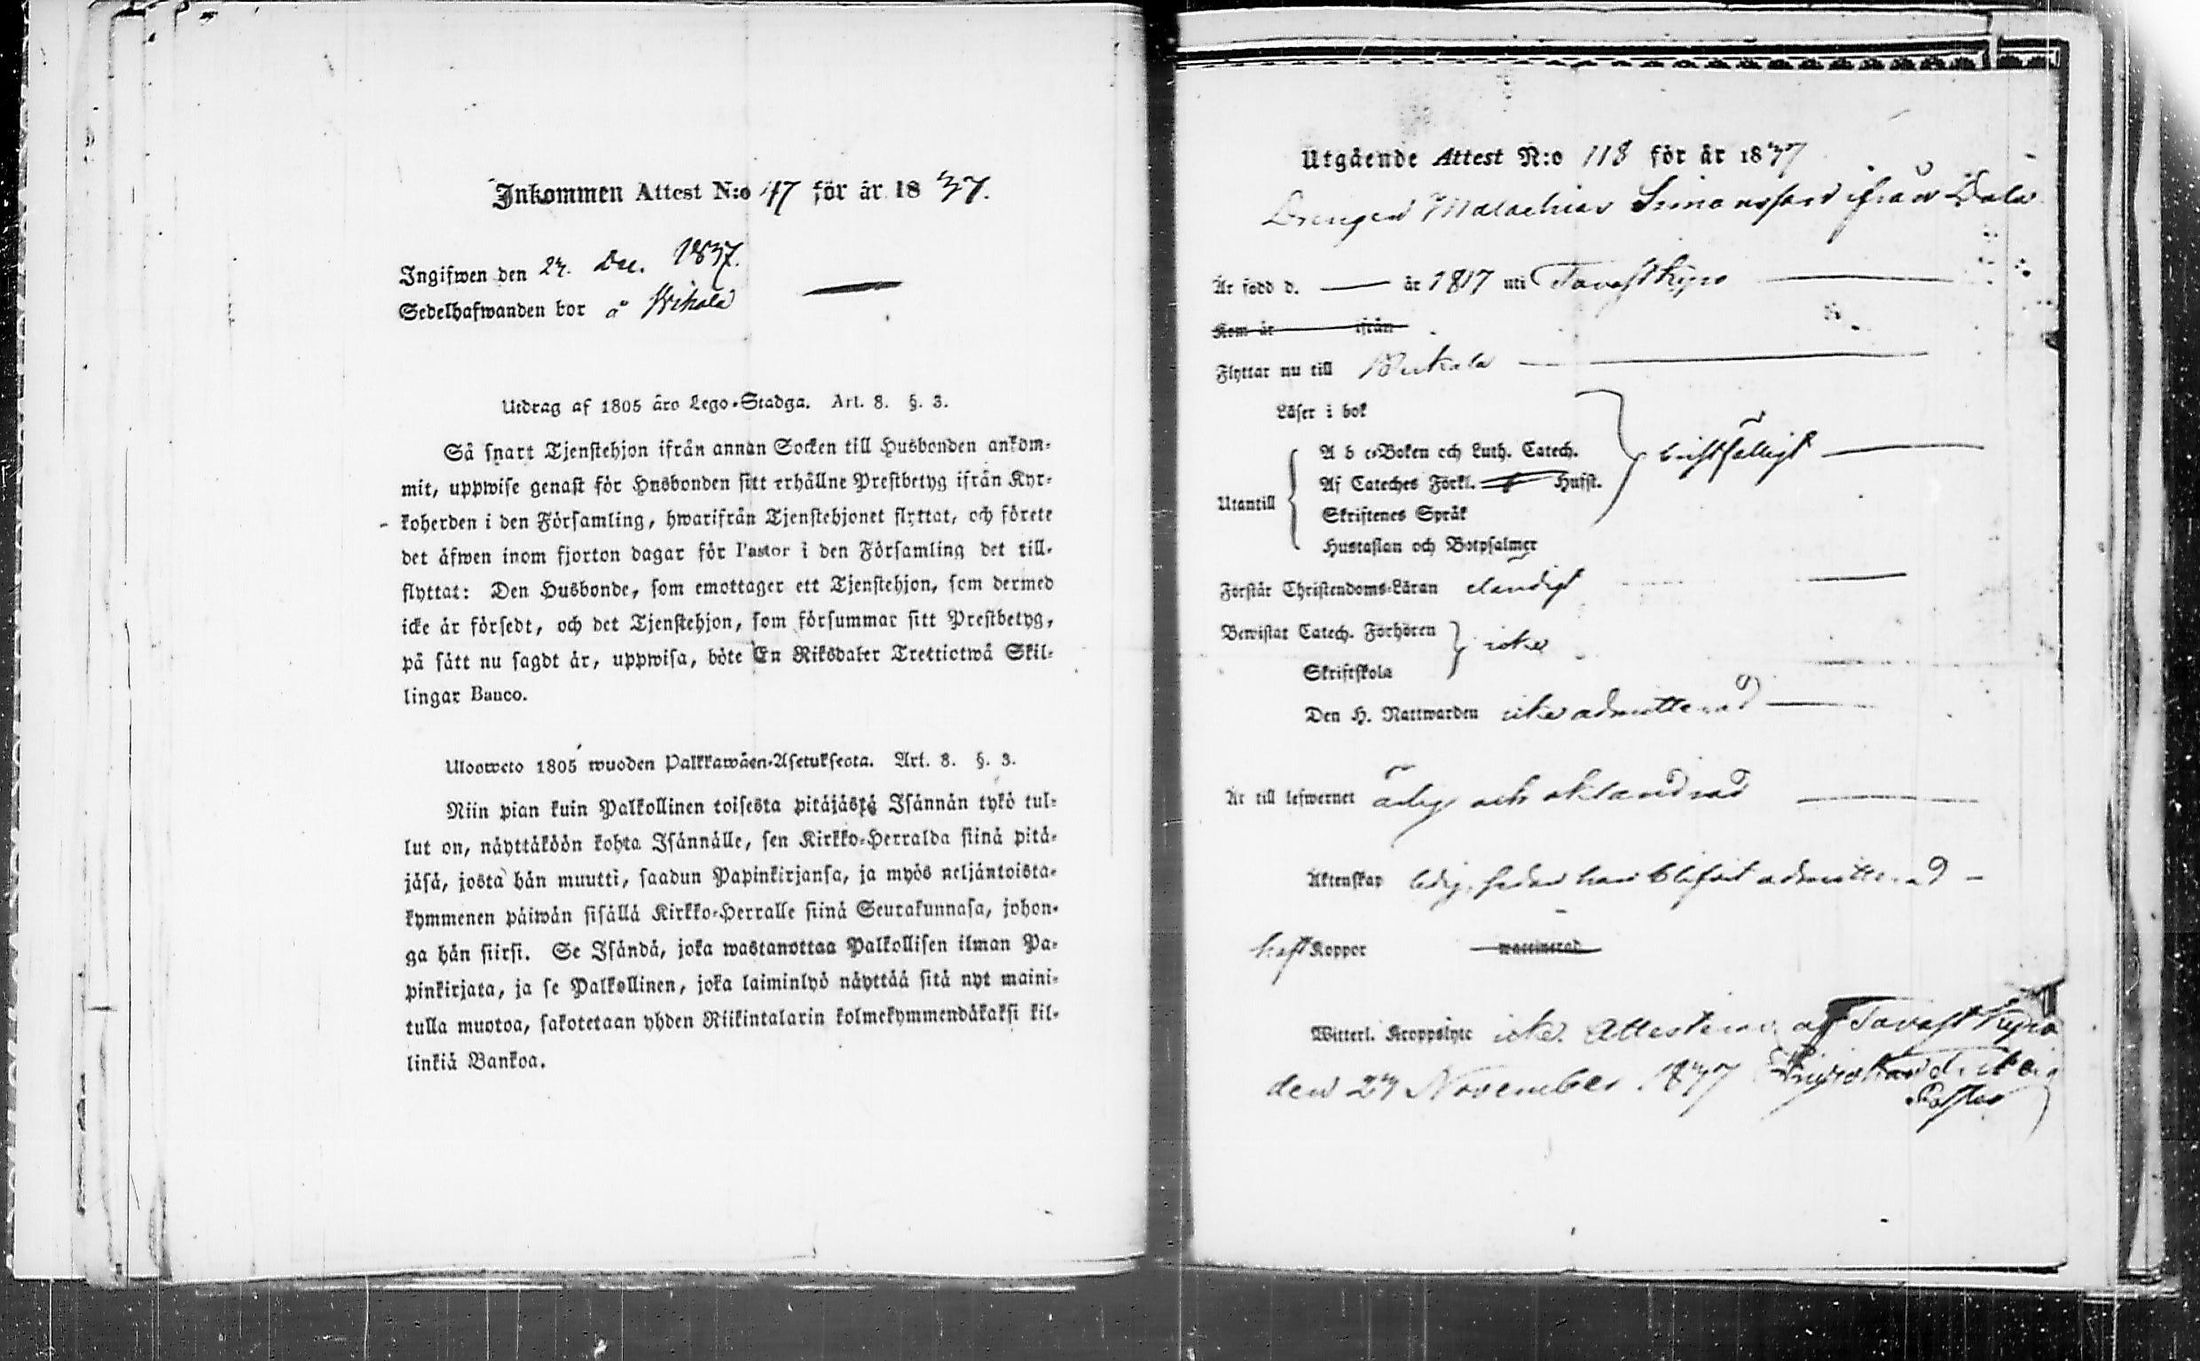 Inkommen Attest N:o 47 för år 1837.
Ingifwen den 27. Dec. 1837.
Sedelhafwanden bor å
Utdrag af 1805 års Lego-Stadga. Art. 8. §. 3.
Så snart Tjenstehjon ifrån annan Socken till Husbonden ankom-
mit, uppwise genast för Husbonden sitt erhållne Prestbetyg ifrån Kyr-
koherden i den Församling, hwarifrån Tjenstehjonet flyttat, och förete
det åfwen inom fjorton dagar för Pastor i den Församling det till-
flyttat: Den Husbonde, som emottager ett Tjenstehjon, som dermed
icke är försedt, och det Tjenstehjon, som försummar sitt Prestbetyg,
på sått nu sagdt är, uppwisa, böte En Riksdaler Trettiotwå Skil-
lingar Banco.
Ulosweto 1805 wuoden Palkkawäen-Asetuksesta. Art. 8. §. 3.
Niin pian kuin Palkollinen toisesta pitäjästä Isännän tykö tul-
lut on, näyttäköön kohta Isännälle, sen Kirkko-Herralda siinä pitä-
jäsä, josta hän muutti, saadun Papinkirjansa, ja myös neljäntoista-
kymmenen päiwän sisällä Kirkko-Herralle siinä Seurakunnasa, johon-
ga hän siirsi. Se Isändä, joka wastanottaa Palkollisen ilman Pa-
pinkirjata, ja se Palkollinen, joka laiminlyö näyttää sitä nyt maini-
tulla muotoa, sakotetaan yhden Riikintalarin kolmekymmendäkaksi kil-
linkiä Bankoa.
Utgående Attest N:o 118 för år 1837
Drengen Malachias Simonsson ifrån Dala
Är född d. — år 1817 uti Tavastkyro
Kom år ifrån
Flyttar nu till
Läser i bok
A b c-Boken och Luth. Catech. bristfälligt
Utantill Af Cateches Förkl. Hufst.
Skriftenes Språk
Hustaflan och Botpsalmer
Förstår Christendoms-Läran elendigt
Bewistat Catech. Förhören icke
Skriftskola
Den H. Nattwarden icke admitterad
Är till lefwernet ärlig och oklandrad
Äktenskap ledig, sedan han blifvit admitterad
haft Koppor waccinerad
Witterl. Kroppslyte icke. Attesterar af Tavastkyro
den 23 November 1837
Pastor